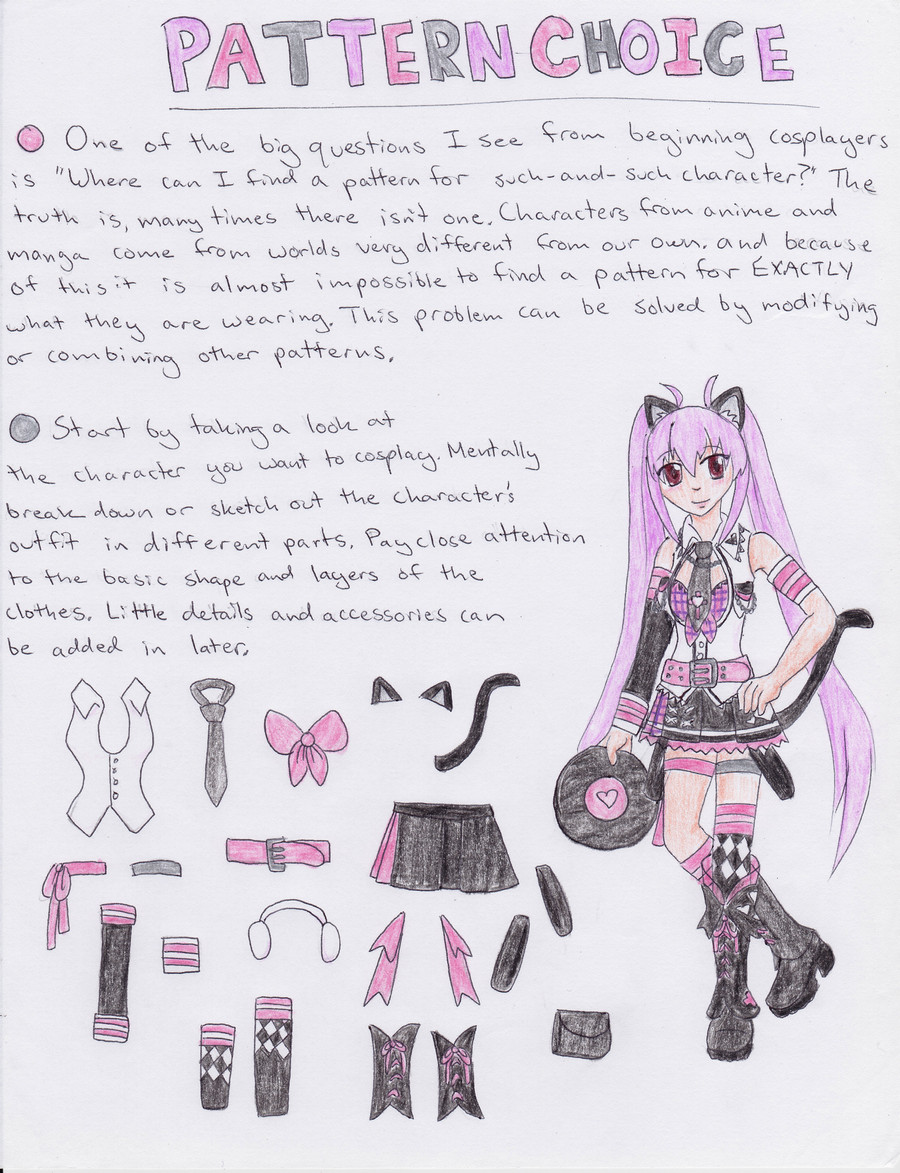 PATTERN CHOICE
One of the big questions I see from beginning cosplayers
is "Where can I find a pattern for such-and-such character?" The
truth is, many times there isn't one. Characters from anime and
manga come from worlds very different from our own. and because
of this it is almost impossible to find a pattern for EXACTLY
what they are wearing. This problem can be solved by modifying
or combining other patterns.
Start by taking a look at
the character you want to cosplay. Mentally
break down or sketch out the character's
outfit in different parts. Pay close attention
to the basic shape and layers of the
clothes. Little details and accessories can
be added in later.